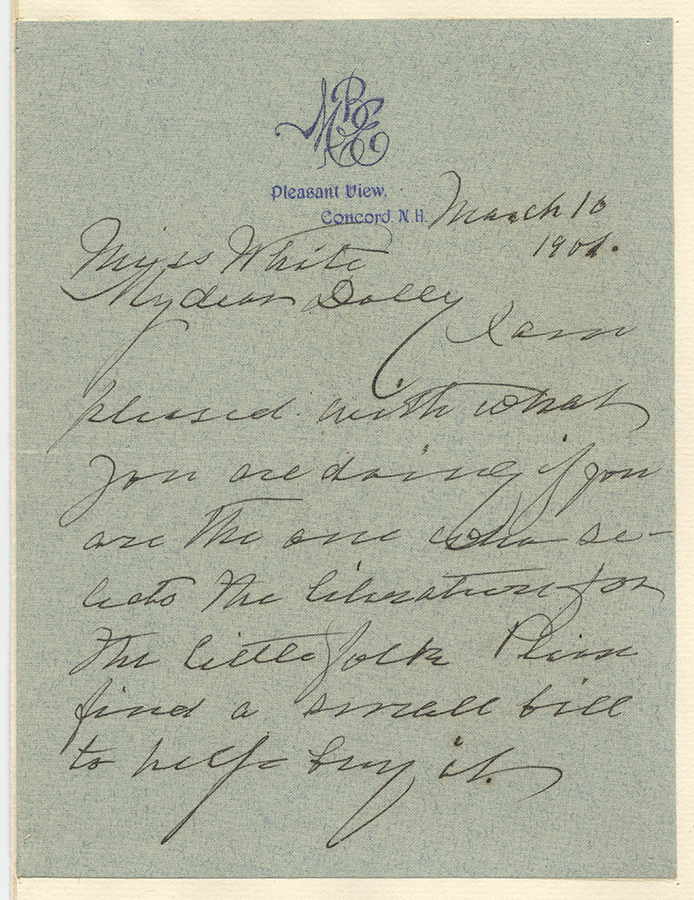 MBE
Pleasant View,
Concord, N.H. March 10
1901.
Miss White
My dear Dolly
I am
pleased with what
you are doing if you
are the one who se-
lects the literature for
the little folk
find a small bill
to help buy it.